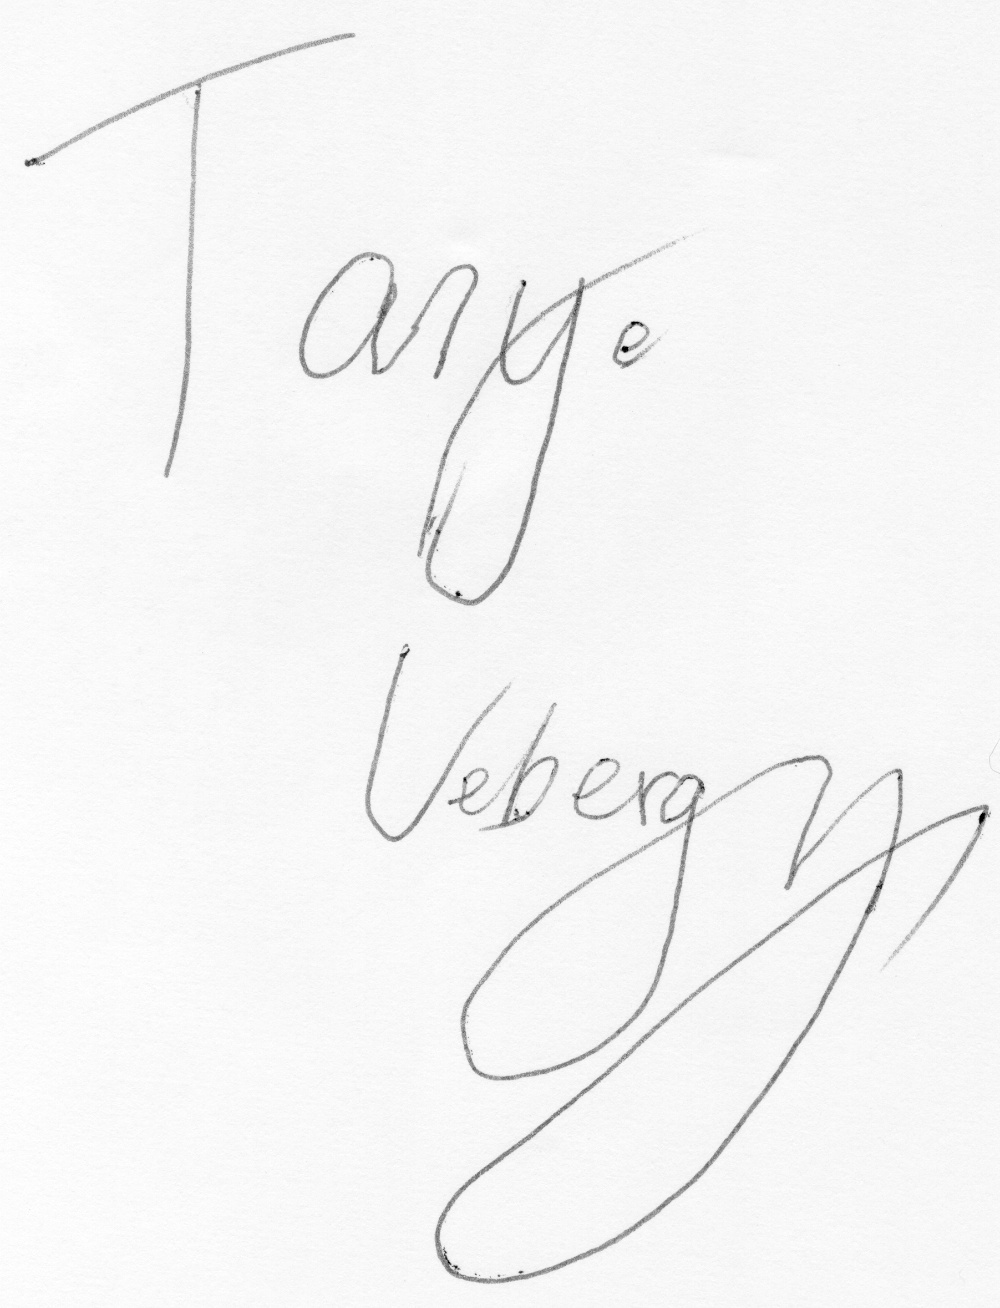 Tanye
Veberg